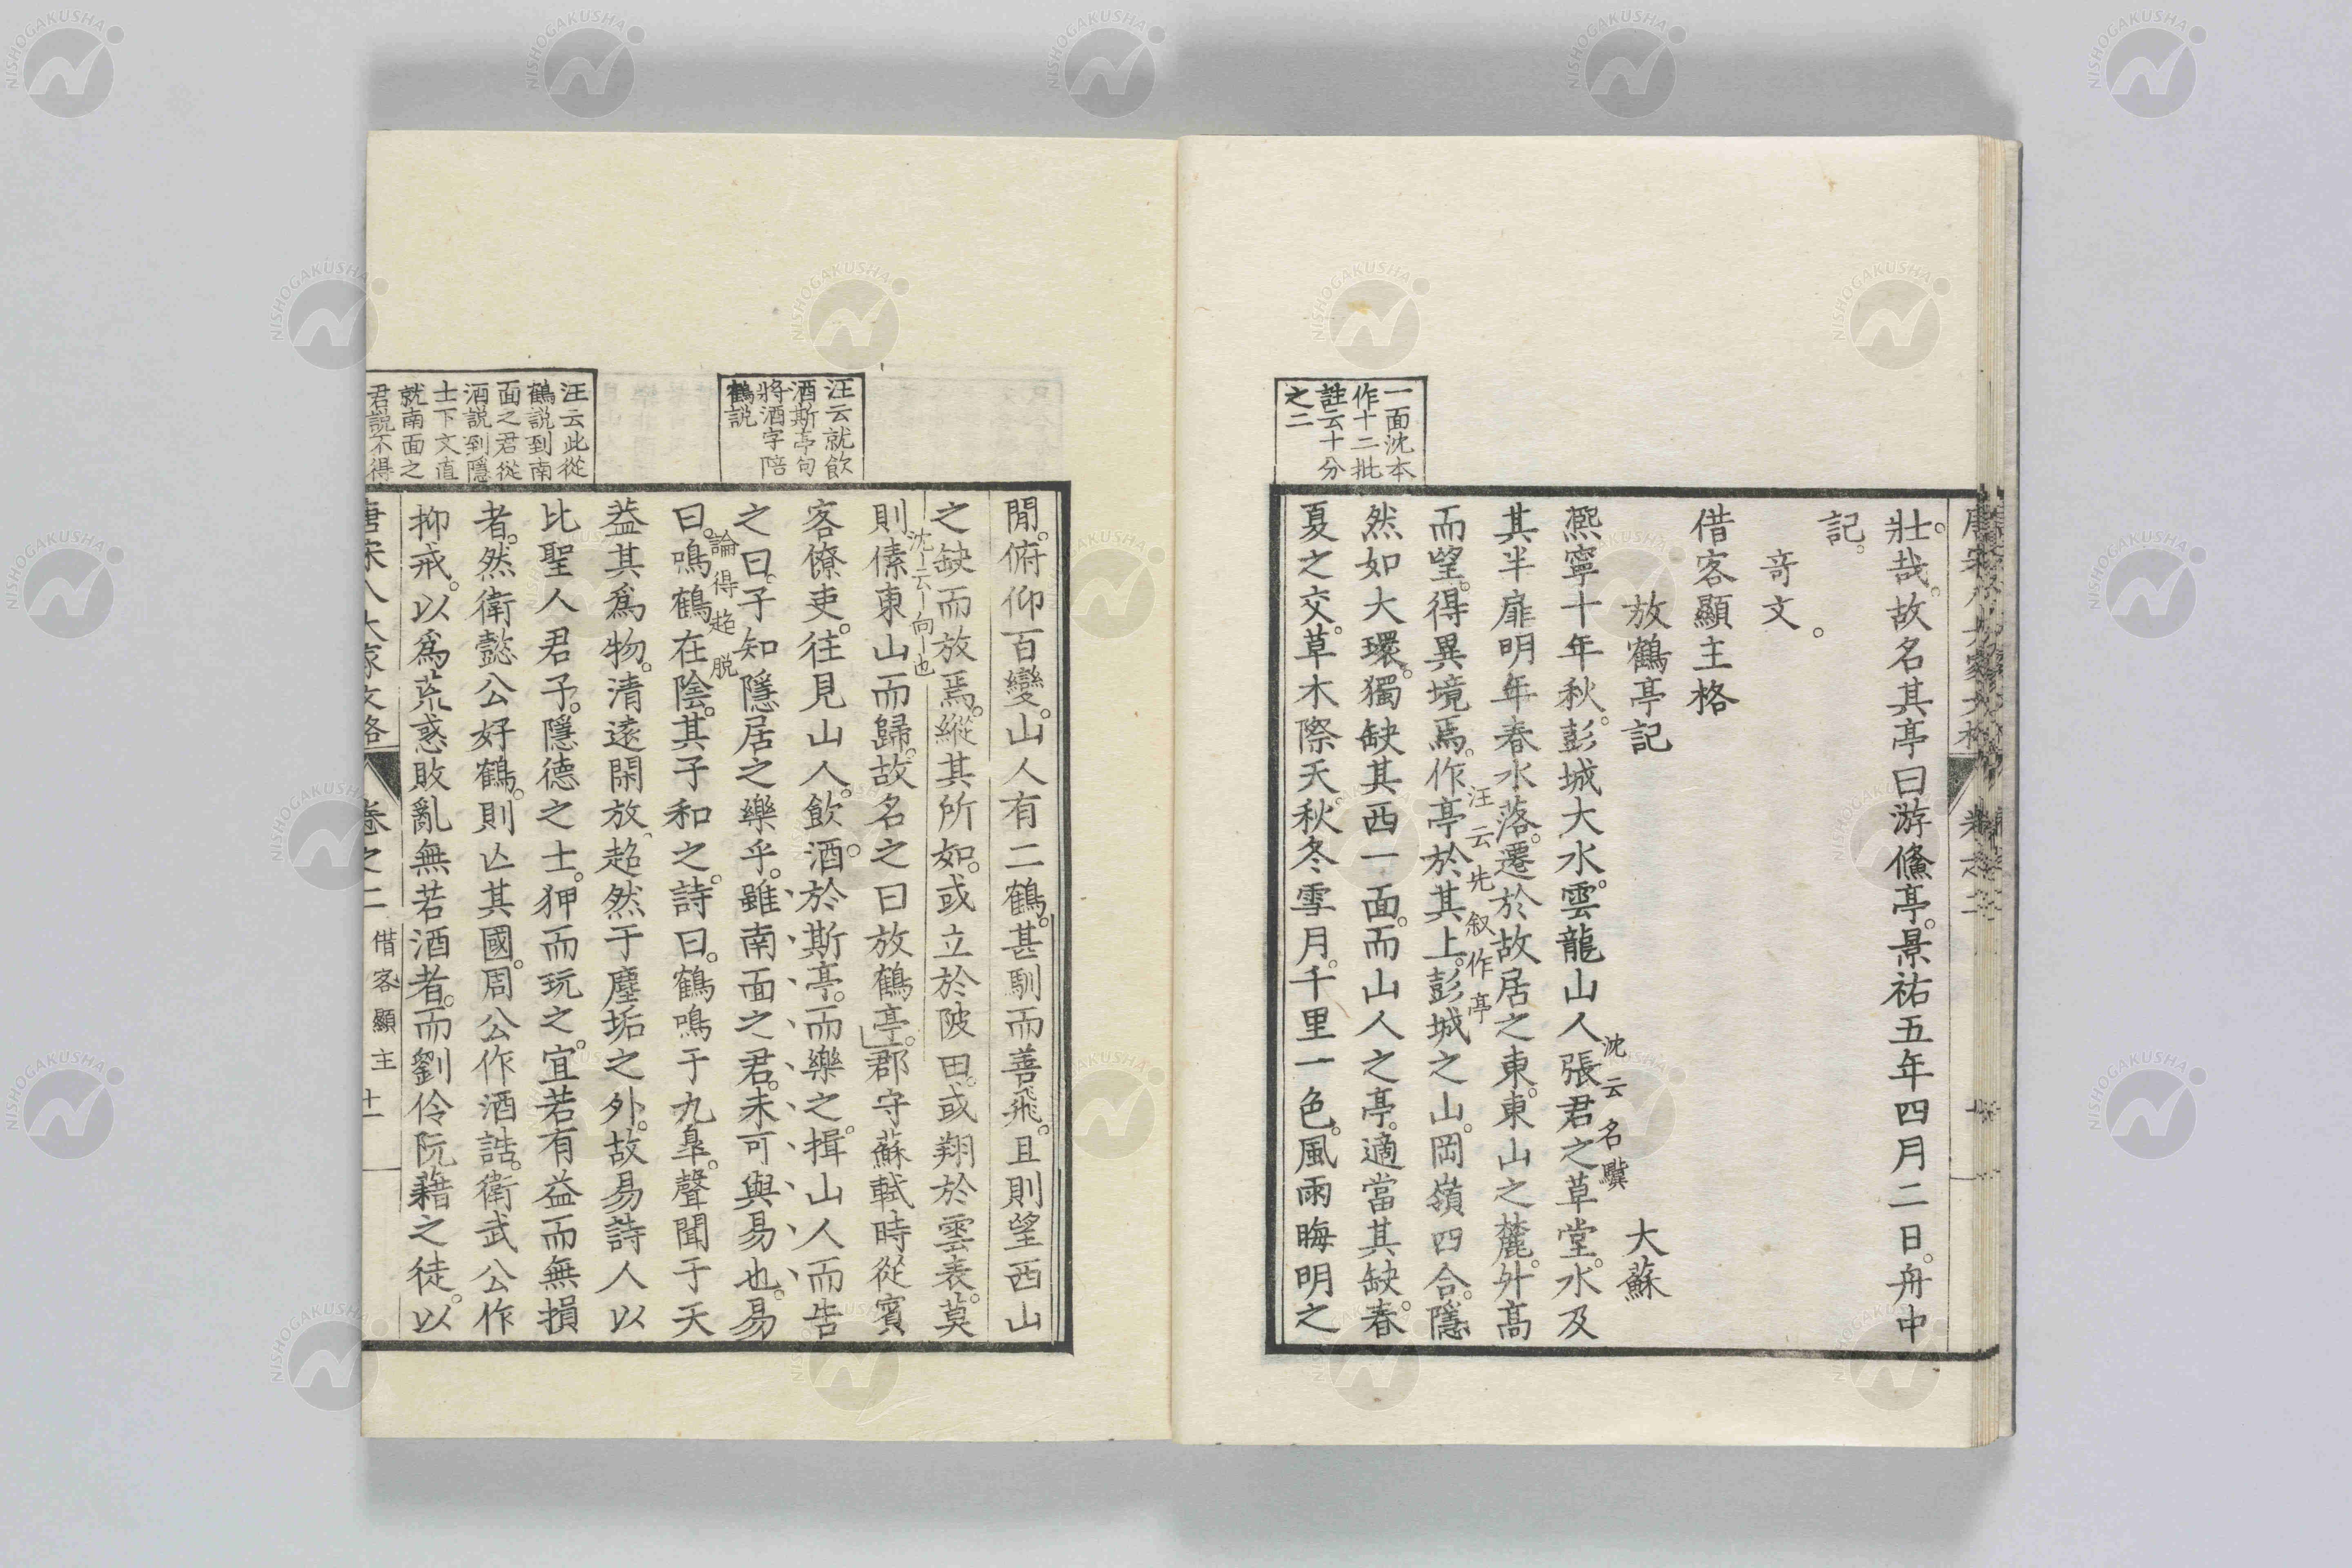 壯哉。故名其亭曰游鯈亭。景祐五年四月二日。舟中
記。
奇文。
借客顯主格
放鶴亭記
大蘇
沈云名驥
熙寧十年秋。彭城大水。雲龍山人張君之草堂。水及
其半扉明年春水落。遷於故居之東。東山之麓。升高
汪云先叙作亭
而望。得異境焉。作亭於其上。彭城之山。岡嶺四合。隱
然如大環。獨缺其西一面。而山人之亭。適當其缺。春
夏之交。草木際天。秋冬雪月。千里一色。風雨晦明之
一面沈本
作十二批
註云十分
之二
閒。俯仰百變。山人有二鶴。甚馴而善飛。且則望西山
之缺而放焉。縱其所如。或立於陂田。或翔於雲表。莫
沈云向也
則傃東山而歸。故名之曰放鶴亭。郡守蘇軾時從賓
客僚吏。往見山人。飲酒於斯亭。而樂之。揖山人而告
之曰。子知隱居之樂乎。雖南面之君。未可與易也。易
論得超脫
曰。鳴鶴在陰。其子和之。詩曰。鶴鳴于九皐。聲聞于天
葢其爲物。清遠閑放、超然于塵垢之外。故易詩人以
比聖人君子。隱德之士。狎而玩之。宜若有益而無損
者。然衛懿公好鶴。則亡其國。周公作酒誥。衛武公作
抑戒。以爲荒惑敗亂無若酒者。而劉伶阮籍之徒。以
汪云就飲
酒斯亭句
將酒字陪
鶴説
汪云此從
鶴説到南
面之君從
酒説到隱
士下文直
就南面之
君説不得
唐宋八大家文格
卷之二
借客顯主
十一